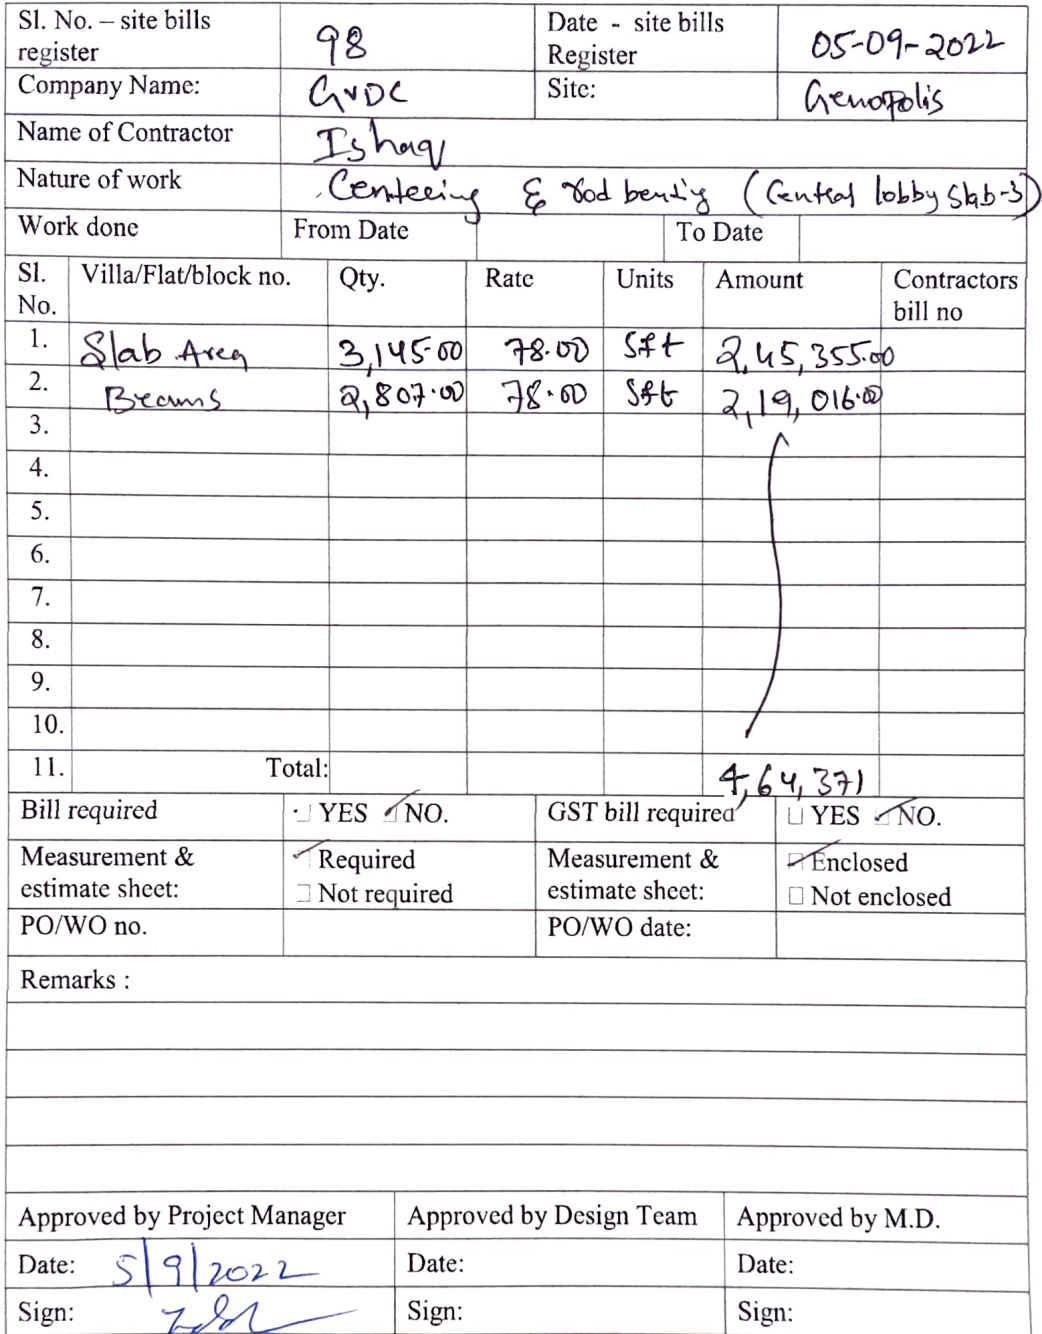 Sl. No. – site bills register 98 Date - site bills Register 05-09-2022
Company Name: GVDC Site: Genopolis
Name of Contractor Ishaq
Nature of work Centeeing & rod bendig (Central lobby Slab-3)
Work done From Date To Date
Sl. No. Villa/Flat/block no. Qty. Rate Units Amount Contractors bill no
1. Slab Area 3,145.00 78.00 Sft 2,45,355.00
2. Beams 2,807.00 78.00 Sft 2,19,016.00
3.
4.
5.
6.
7.
8.
9.
10.
11. Total: 4,64,371
Bill required YES NO. GST bill required YES NO.
Measurement & estimate sheet: Required Measurement & estimate sheet: Enclosed
Not required Not enclosed
PO/WO no. PO/WO date:
Remarks :
Approved by Project Manager Approved by Design Team Approved by M.D.
Date: 5/9/2022 Date: Date:
Sign: Sign: Sign: